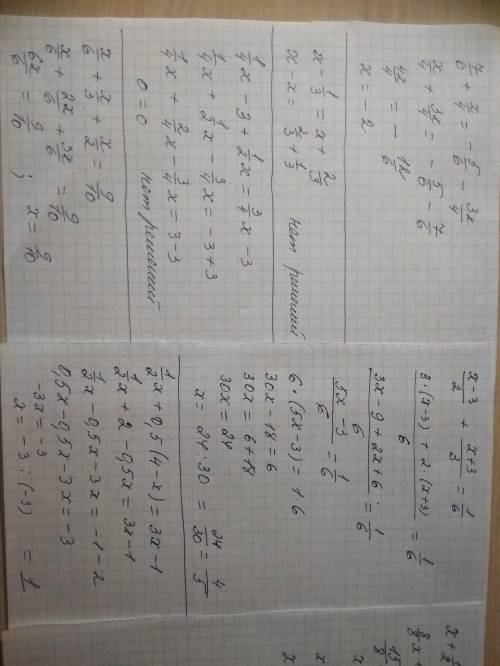 7/6 + x/4 = - 5/6 - 3x/4
x/4 + 3x/4 = - 5/6 - 7/6
4x/4 = - 12/6
x = - 2
x - 1/3 = x + 2/3
x - x = 2/3 + 1/3 нет решений
1/4 x - 3 + 1/2 x = 3/4 x - 3
1/4 x + 1/2 x - 3/4 x = - 3 + 3
1/4 x + 2/4 x - 3/4 x = 3 - 3
0 = 0 нет решений
x/6 + x/3 + x/2 = 9/10
x/6 + 2x/6 + 3x/6 = 9/10
6x/6 = 9/10 ; x = 9/10
x-3/2 + x+3/3 = 1/6
3·(x-3) + 2·(x+3)/6 = 1/6
3x - 9 + 2x + 6/6 = 1/6
5x - 3/6 = 1/6
6·(5x-3) = 1·6
30x - 18 = 6
30x = 6 + 18
30x = 24
x = 24:30 = 24/30 = 4/5
1/2 x + 0,5(4-x) = 3x - 1
1/2 x + 2 - 0,5x = 3x - 1
1/2 x - 0,5x - 3x = - 1 - 2
0,5x - 0,5x - 3x = - 3
- 3x = - 3
x = - 3 : (-3) = 1
8/8 x
x
x
x